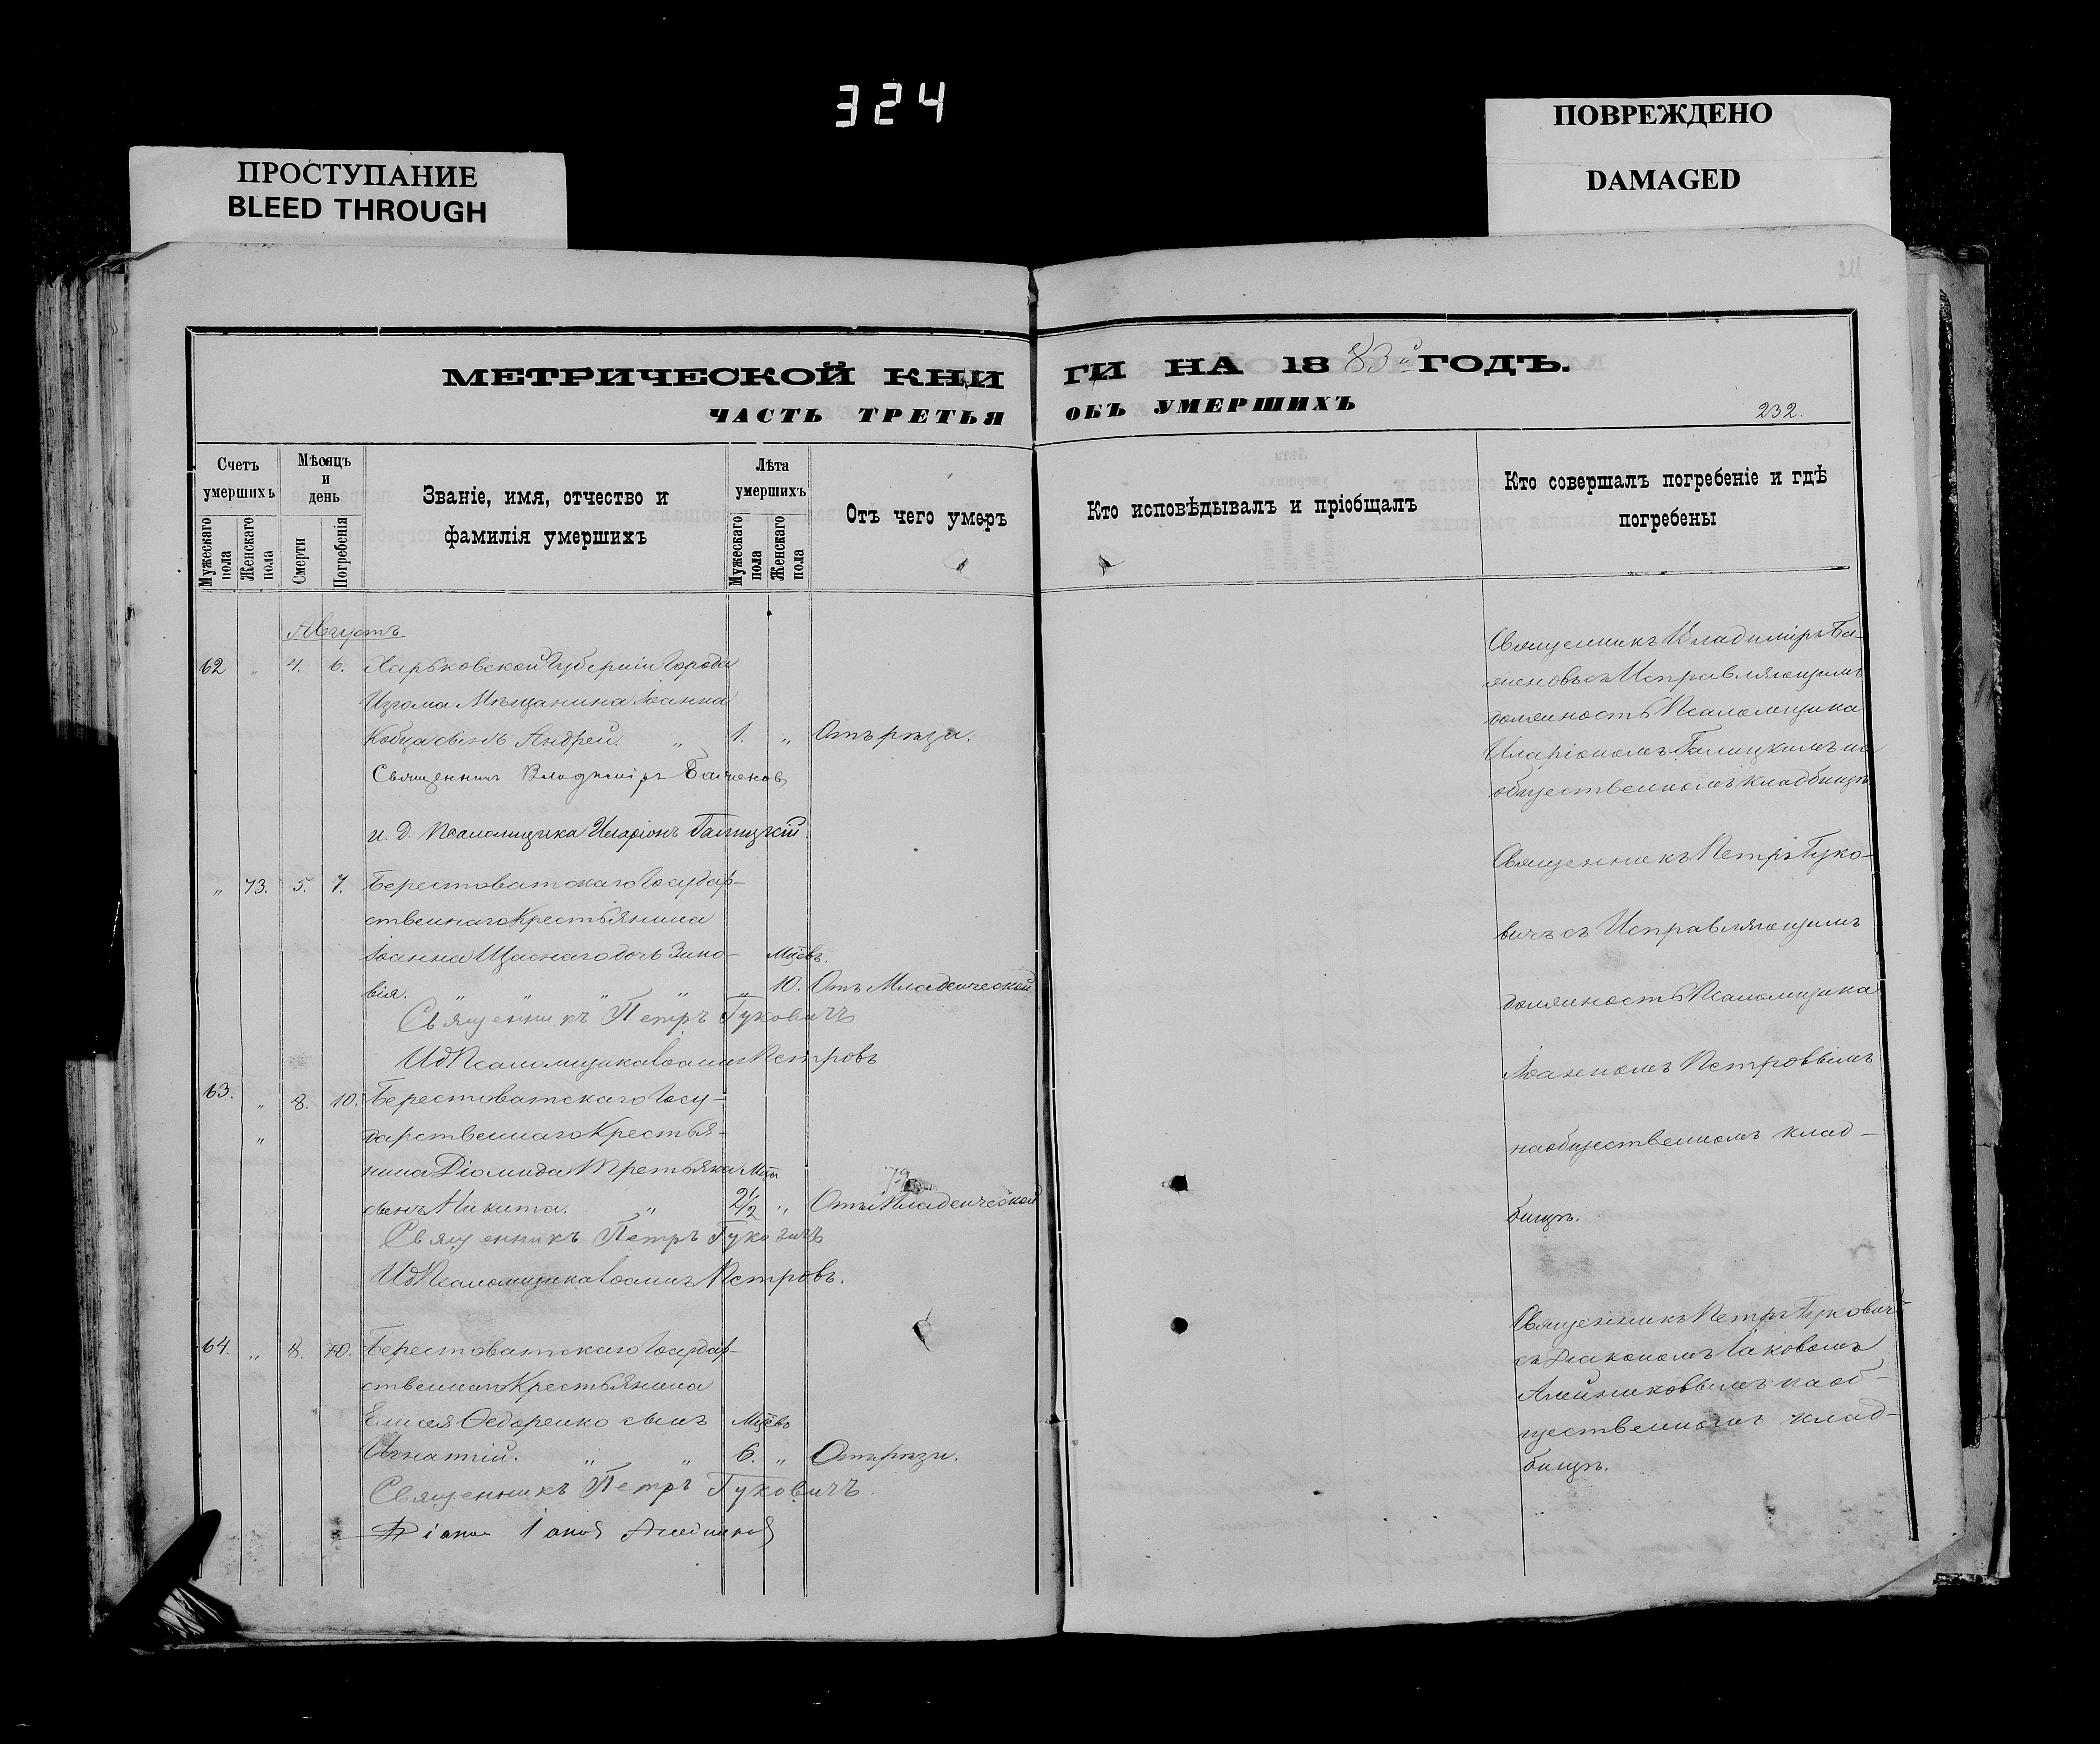 324
ПРОСТУПАНИЕ
BLEED THROUGH
ПОВРЕЖДЕНО
DAMAGED
МЕТРИЧЕСКОЙ КНИ
ГИ НА 1883й ГОДЪ.
ЧАСТЬ ТРЕТЬЯ
ОБЪ УМЕРШИХЪ
232.
Счетъ умершихъ
Мужескаго пола
Женскаго пола
Мѣсяцъ и день
Смерти
Погребенія
Званіе, имя, отчество и
фамилія умершихъ
Лѣта умершихъ
Мужескаго пола
Женскаго пола
Отъ чего умеръ
Кто исповѣдывалъ и пріобщалъ
Кто совершалъ погребеніе и гдѣ
погребены
Августъ
62 " 4. 6. Харьковской Губерніи Города
Изюма Мѣщанина Іоанна
сынъ Андрей. " 1. " Отъ рѣзи.
Священникъ Владиміръ
и. д. Псаломщика Иларіонъ Галицкій.
Священникъ Владиміръ
съ Исправляющимъ
должность Псаломщика
Иларіономъ Галицкимъ на
общественномъ кладбищѣ
" 73. 5. 7. Берестоватскаго Государ-
ственнаго Крестьянина
Іоанна Щаснаго дочь Зино- Мцевъ.
вія. " " " " " 10. Отъ Младенческой
Священникъ Петръ Гуковичъ
ИдПсаломщика Іоаннъ Петровъ
Священникъ Петръ Гуко-
вичъ съ Исправляющимъ
должность Псаломщика
Іоанномъ Петровымъ
на общественномъ клад-
бищѣ.
63. " 8. 10. Берестоватскаго Госу-
" дарственнаго Крестья-
нина Діомида Третьяка Мца
сынъ Никита. " 2 1/2 " Отъ Младенческой
Священникъ Петръ Гуковичъ
ИдПсаломщика Іоаннъ Петровъ.
64. " 8. 10. Берестоватскаго Государ-
ственнаго Крестьянина
Елисея Ѳедоренко сынъ Мцевъ
Игнатій. " " 6. " Отъ рѣзи.
Священникъ Петръ Гуковичъ.
Священникъ Петръ Гуковичъ
съ Діакономъ Іаковомъ
Алейниковымъ на об-
щественномъ клад-
бищѣ.